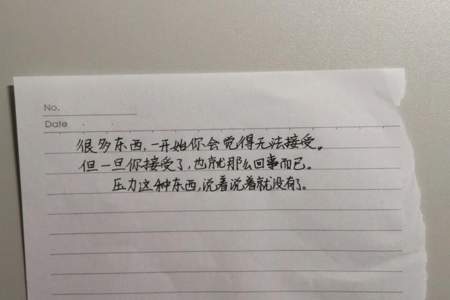 No.
Date
很多东西,一开始你会觉得无法接受。
但一旦你接受了,也就那么回事而已。
压力这种东西,说着说着就没有了。